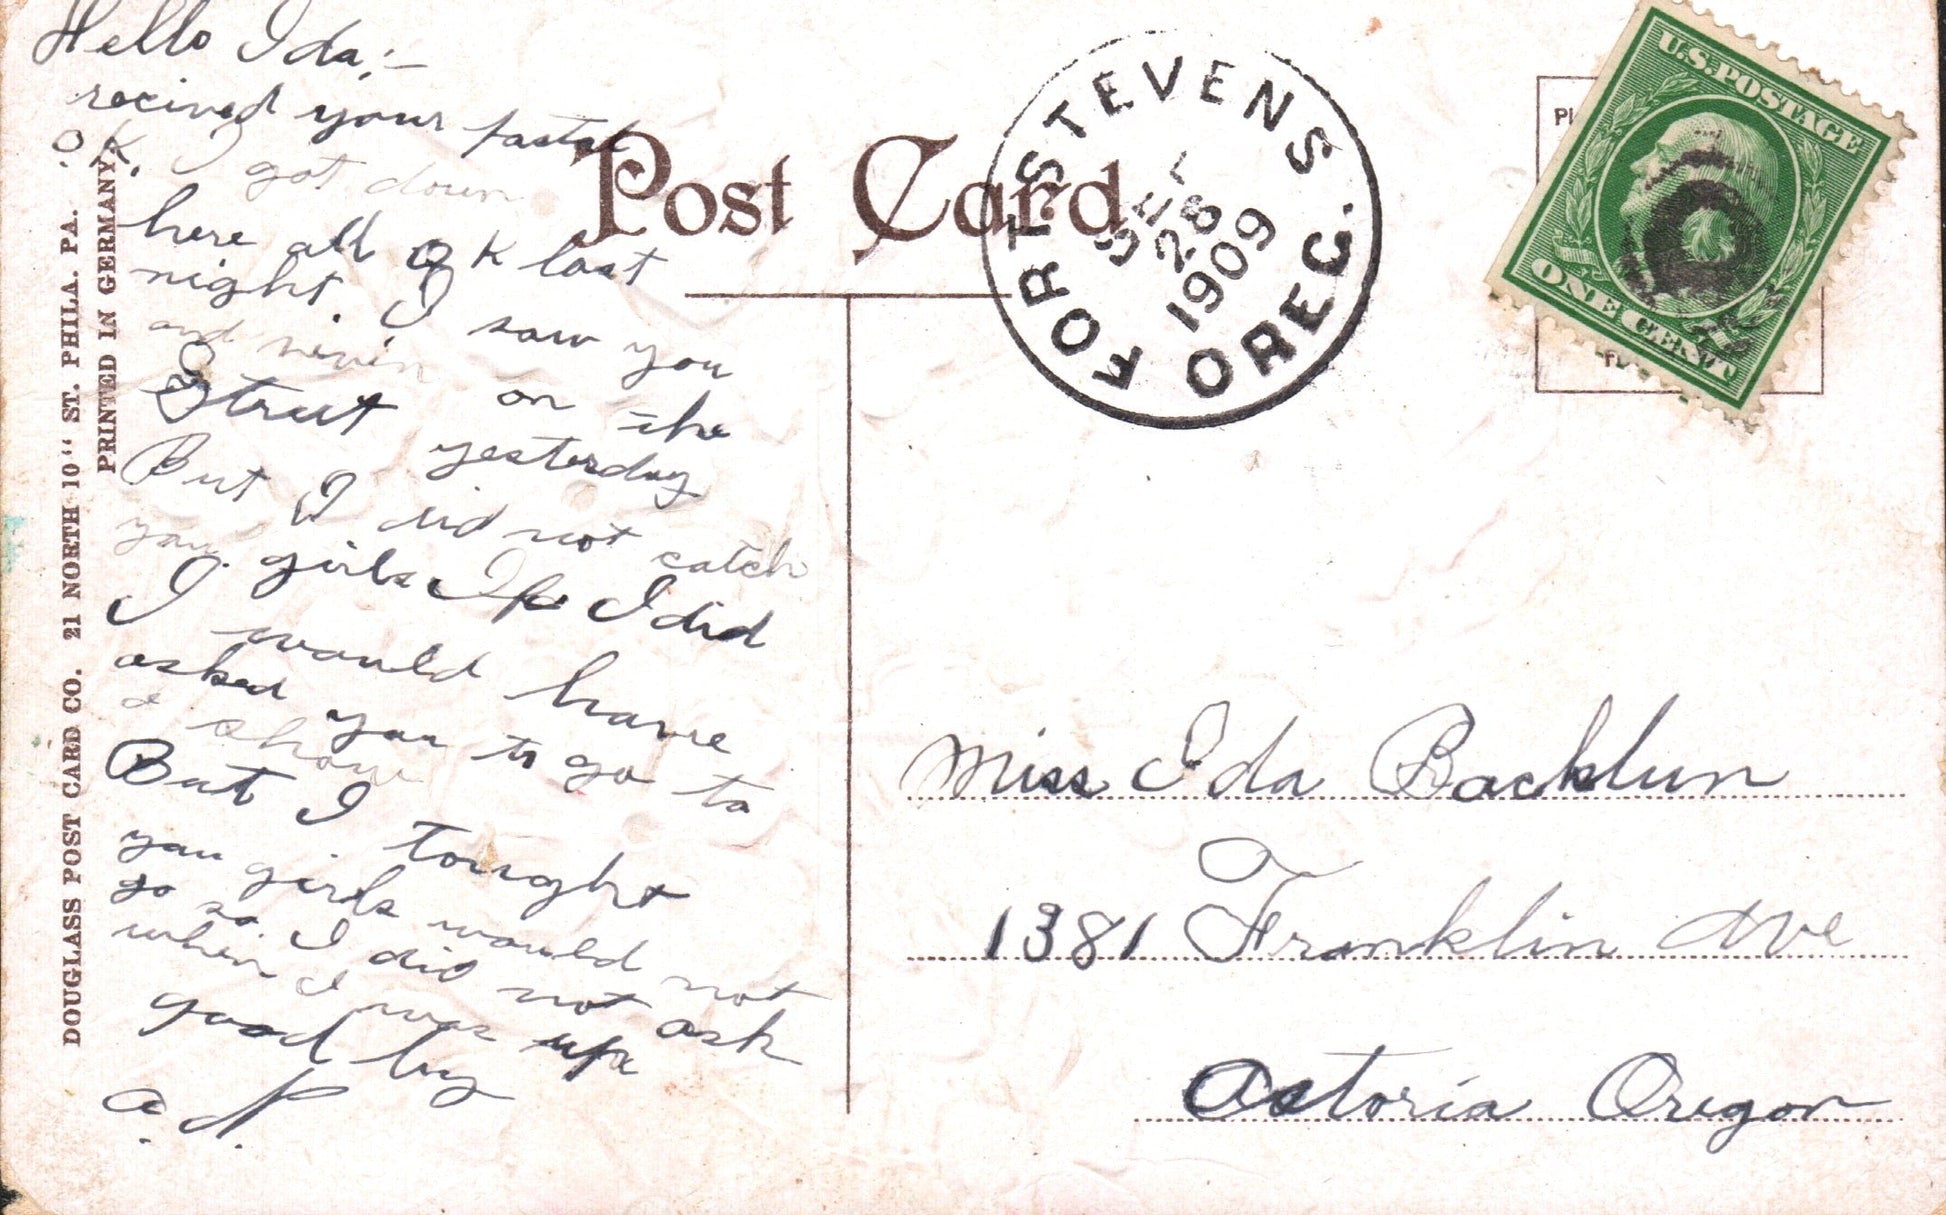 Hello Ida;—
recived your fastal
O.K. I got down
here all O K last
night. I saw you
and on the
Street yesterday
But I did not catch
you girls If I did
I would have
asked you to go to
a show
But I tought
you girls would not
go so I did not ask
when I was up
good by
Post Card
FORT STEVENS
SEP
28
1909
OREG.
U.S. POSTAGE
ONE CENT
Miss Ida Backlun
1381 Franklin Ave
Astoria Oregon
DOUGLASS POST CARD CO. 21 NORTH 10" ST. PHILA. PA.
PRINTED IN GERMANY